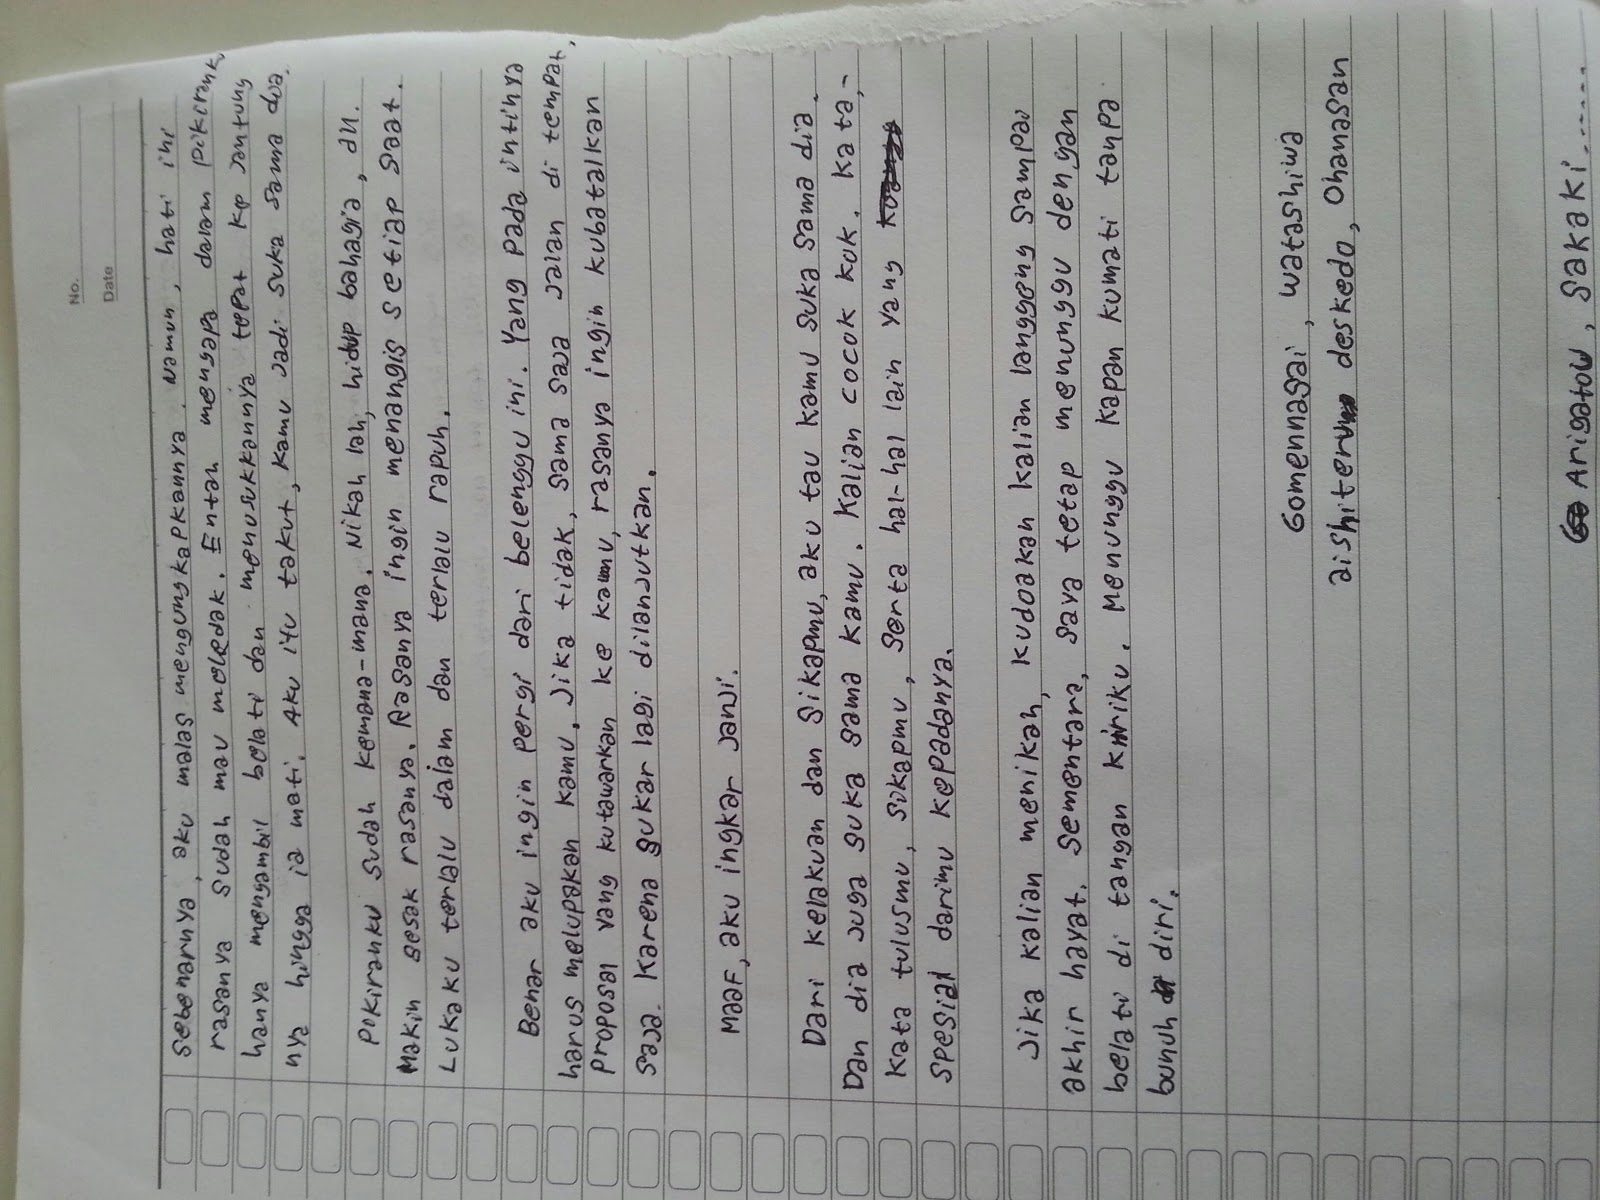 No.
Date
sebenarnya, aku malas mengungkapkannya. Namun, hati ini
rasanya sudah mau meledak. Entah mengapa dalam pikiranku,
hanya mengambil belati dan menusukkannya tepat ke jantung
nya hingga ia mati. Aku itu takut, kamu jadi suka sama dia.
Pikiranku sudah kemana-mana. Nikah lah, hidup bahagia, dll.
Makin sesak rasanya. Rasanya ingin menangis setiap saat.
Lukaku terlalu dalam dan terlalu rapuh.
Benar aku ingin pergi dari belenggu ini. Yang pada intinya
harus melupakan kamu. Jika tidak, sama saja jalan di tempat,
proposal yang kutawarkan ke kamu, rasanya ingin kubatalkan
saja. Karena sukar lagi dilanjutkan.
Maaf, aku ingkar janji.
Dari kelakuan dan sikapmu, aku tau kamu suka sama dia.
Dan dia juga suka sama kamu. Kalian cocok kok. Kata,-
kata tulusmu, sikapmu, serta hal-hal lain yang
spesial darimu kepadanya.
Jika kalian menikah, kudoakan kalian langgeng sampai
akhir hayat. Sementara, saya tetap menunggu dengan
belati di tangan kiriku. Menunggu kapan kumati tanpa
bunuh diri.
Gomennasai, watashiwa
aishiteru deskedo, Ohanasan
Arigatou, Sakaki.......